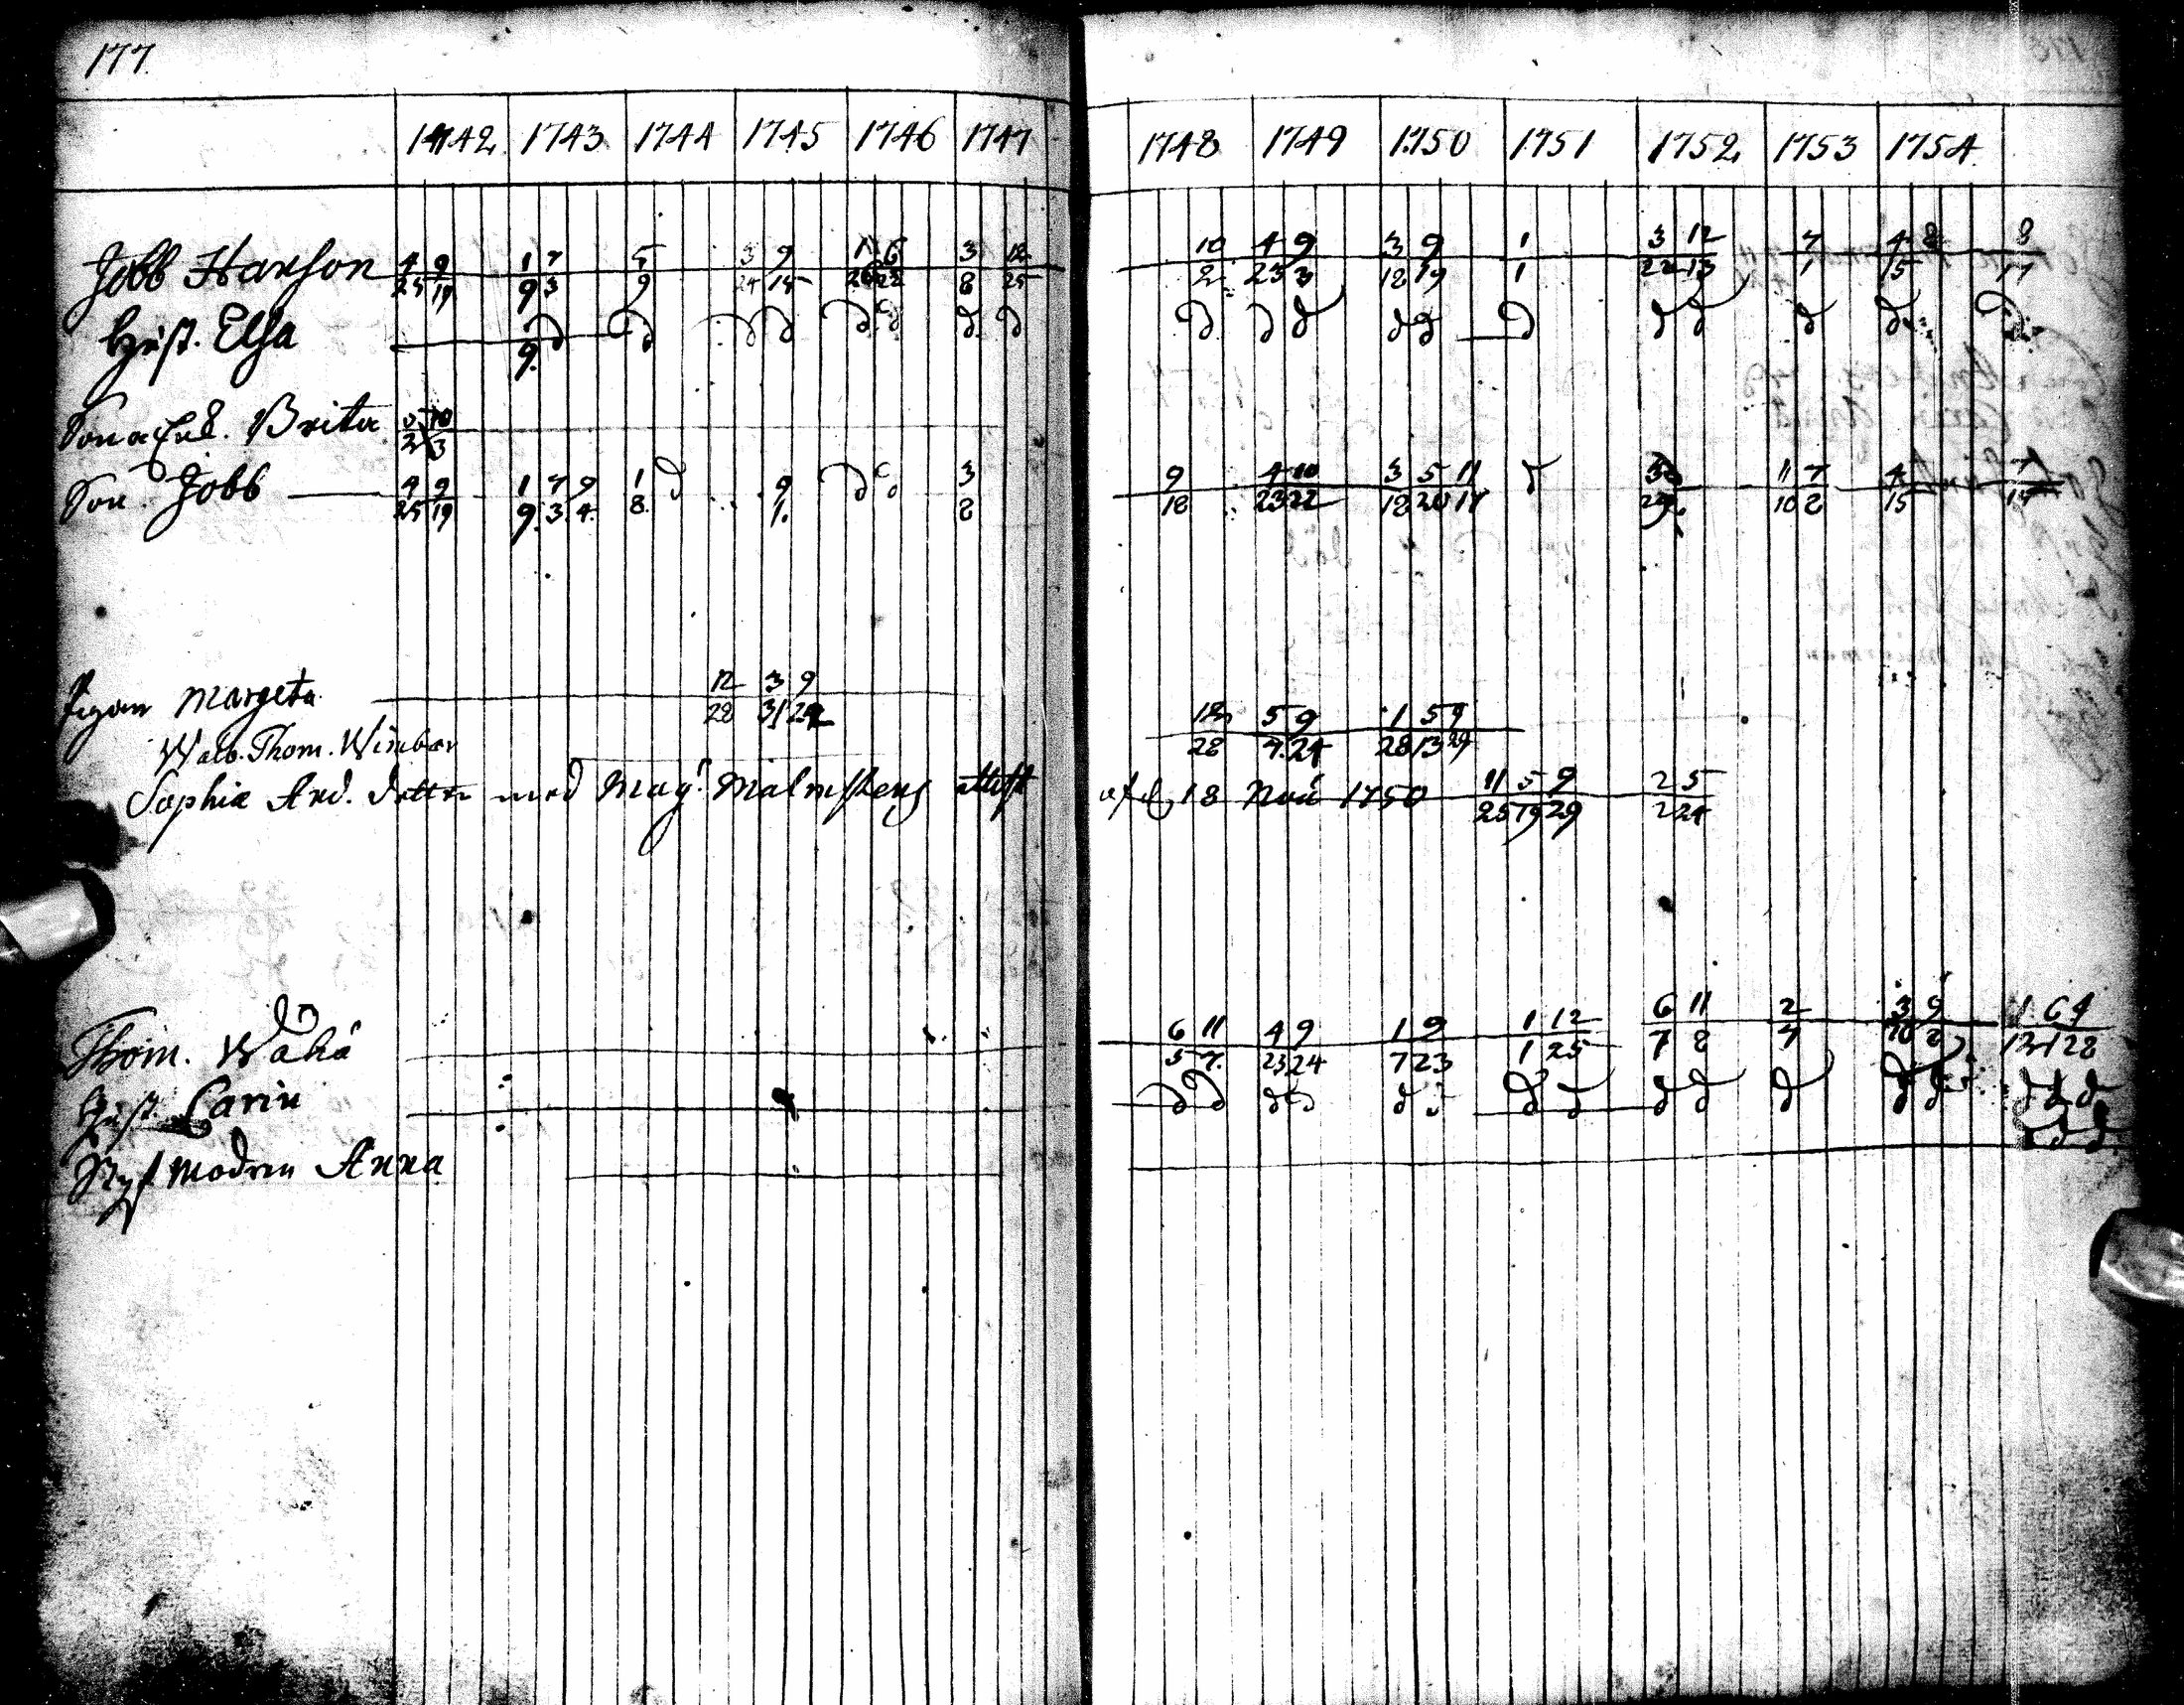 177
1742 1743 1744 1745 1746 1747 1748 1749 1750 1751 1752 1753 1754
Jobb Hanson 4/25 9/19 1/9 7/3 5/9 3/24 9/15 3/8 12/25 10/2 4/23 9/3 3/18 9/19 1/1 3/22 12/13 7/1 4/15 8/17
Hust. Elsa d d d d d d d d d d d d d d d d d d
Brita
Son Jobb 4/25 9/19 1/9 7/3 9/4 1/8 d 9/1 d d 3/8 9/18 4/23 10/22 3/18 5/20 11/17 d 11/10 7/2 4/15
Pigan Margeta 12/28 3/31 9/24 12/28 5/7 9/24 1/28 5/13 9/29
Walb. Thom.
Sophia And. dotter med Mag. Malmsberg attest af d 18 Nov 1750 11/25 5/19 9/29 2/2 5/24
Thom. Wähä 6/5 11/7 4/23 9/24 1/7 9/23 1/1 12/25 6/7 11/8 2/7 3/10 9/2
Hust. Carin d d d d d d d d d d d d d d d d
Styfmodren Anna